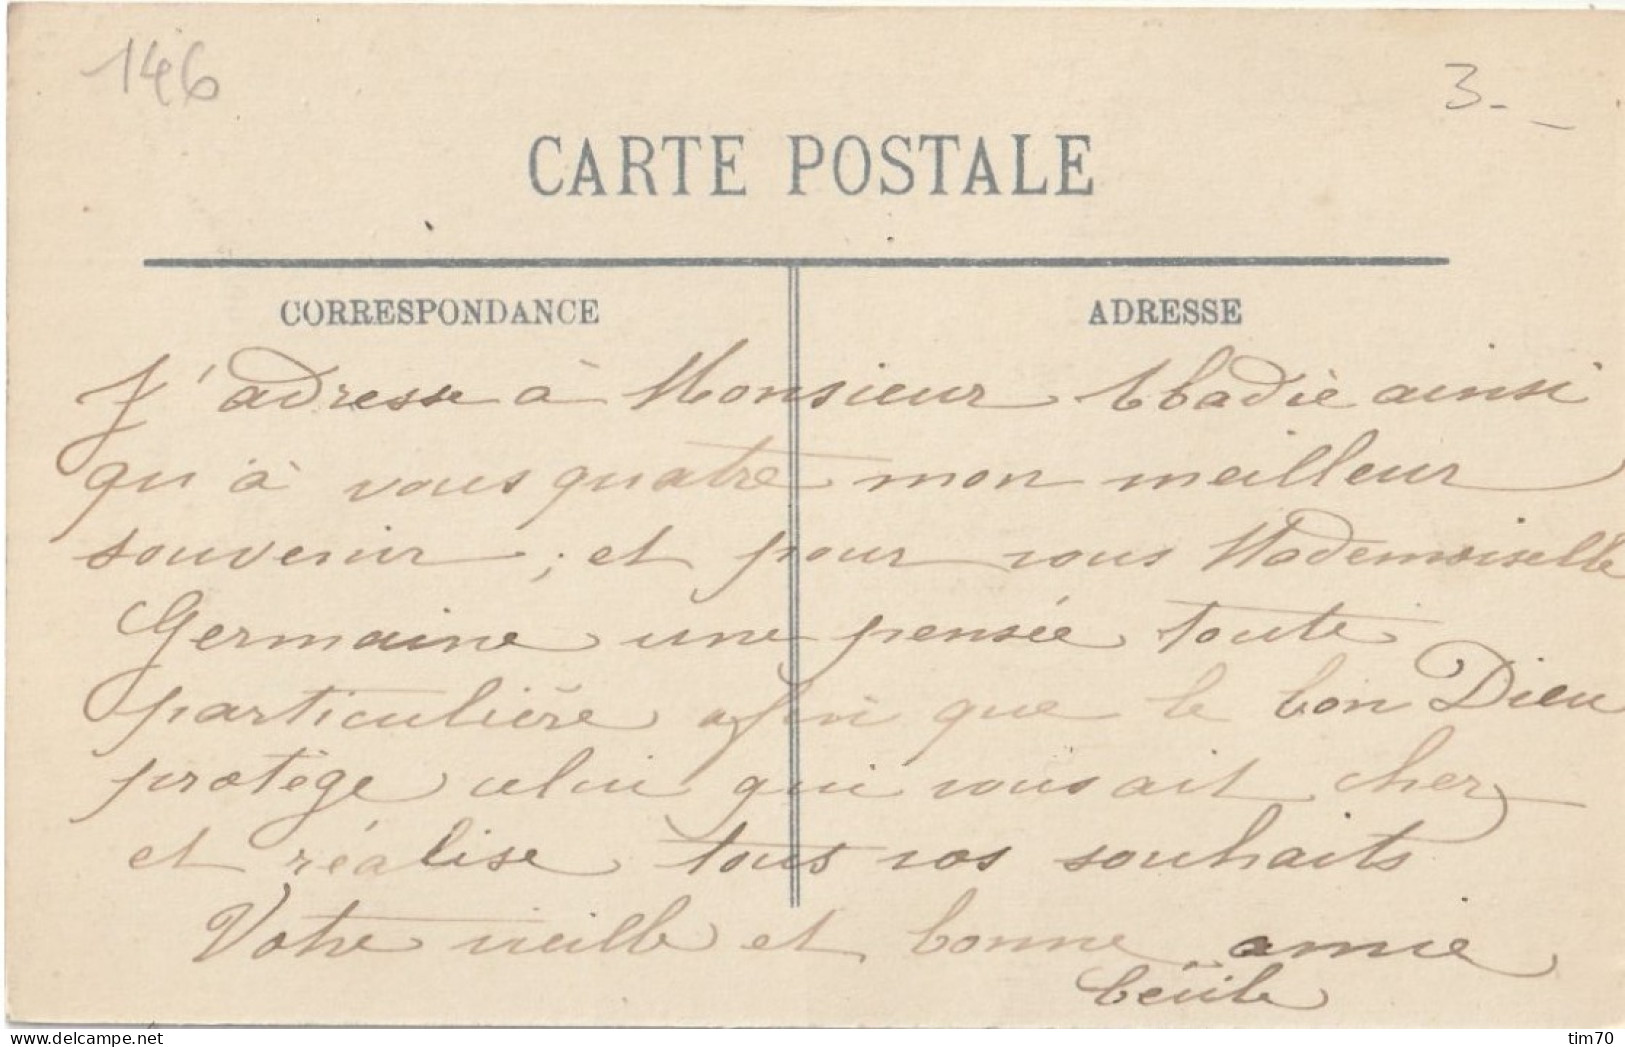 146
3.-
CARTE POSTALE
CORRESPONDANCE
ADRESSE
J'adresse à Monsieur Abadie ainsi
qu'à vous quatre mon meilleur
souvenir ; et pour vous Mademoiselle
Germaine une pensée toute
particulière afin que le bon Dieu
protège celui qui vous ait cher
et réalise tous vos souhaits
Votre vieille et bonne amie
Cécile
www.delcampe.net
tim70